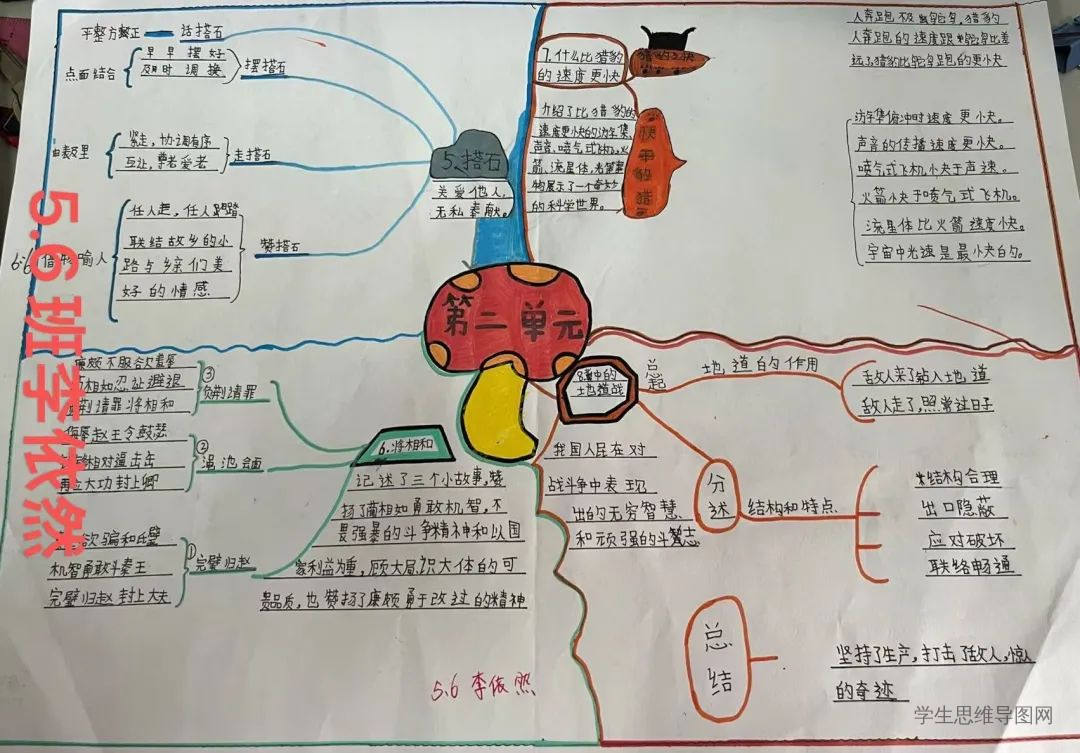 第二单元
5.搭石
关爱他人,
无私奉献。
平整方正 话搭石
点面结合
早早摆好
及时调换
摆搭石
由表及里
紧走,协调有序
互让,尊老爱老
走搭石
借物喻人
任人走,任人踏
联结故乡的小
路与乡亲们美
好的情感
赞搭石
7.什么比猎豹
的速度更快
介绍了比猎豹的
速度更快的游隼、
声音、喷气式飞机、火
箭、流星体、光等事
物展示了一个奇妙
的科学世界。
人奔跑极
人奔跑的速度跟鸵鸟比差
远了猎豹比鸵鸟跑的更快
游隼俯冲时速度更快。
声音的传播速度更快。
喷气式飞机小快于声速。
火箭小快于喷气式飞机。
流星体比火箭速度快。
宇宙中光速是最小快白的。
6.将相和
记述了三个小故事,赞
扬了蔺相如勇敢机智,不
畏强暴的斗争精神和以国
家利益为重,顾大局识大体的可
贵品质,也赞扬了廉颇勇于改过的精神
③
负荆请罪
廉颇不服欲羞辱
相如忍让避退
负荆请罪将相和
②
渑池会面
侮辱赵王令鼓瑟
相对逼击缶
再立大功封上卿
①
完璧归赵
欲骗和氏璧
机智勇敢斗秦王
完璧归赵封上大夫
8.冀中的
地道战
我国人民在对
战斗争中表现
出的无穷智慧
和顽强的斗志
总起
地道的作用
敌人来了钻入地道
敌人走了,照常过日子
分述
结构和特点
结构合理
出口隐蔽
应对破坏
联络畅通
总结
坚持了生产,打击了敌人,惊人
的奇迹
5.6 李依然
5.6班李依然
学生思维导图网